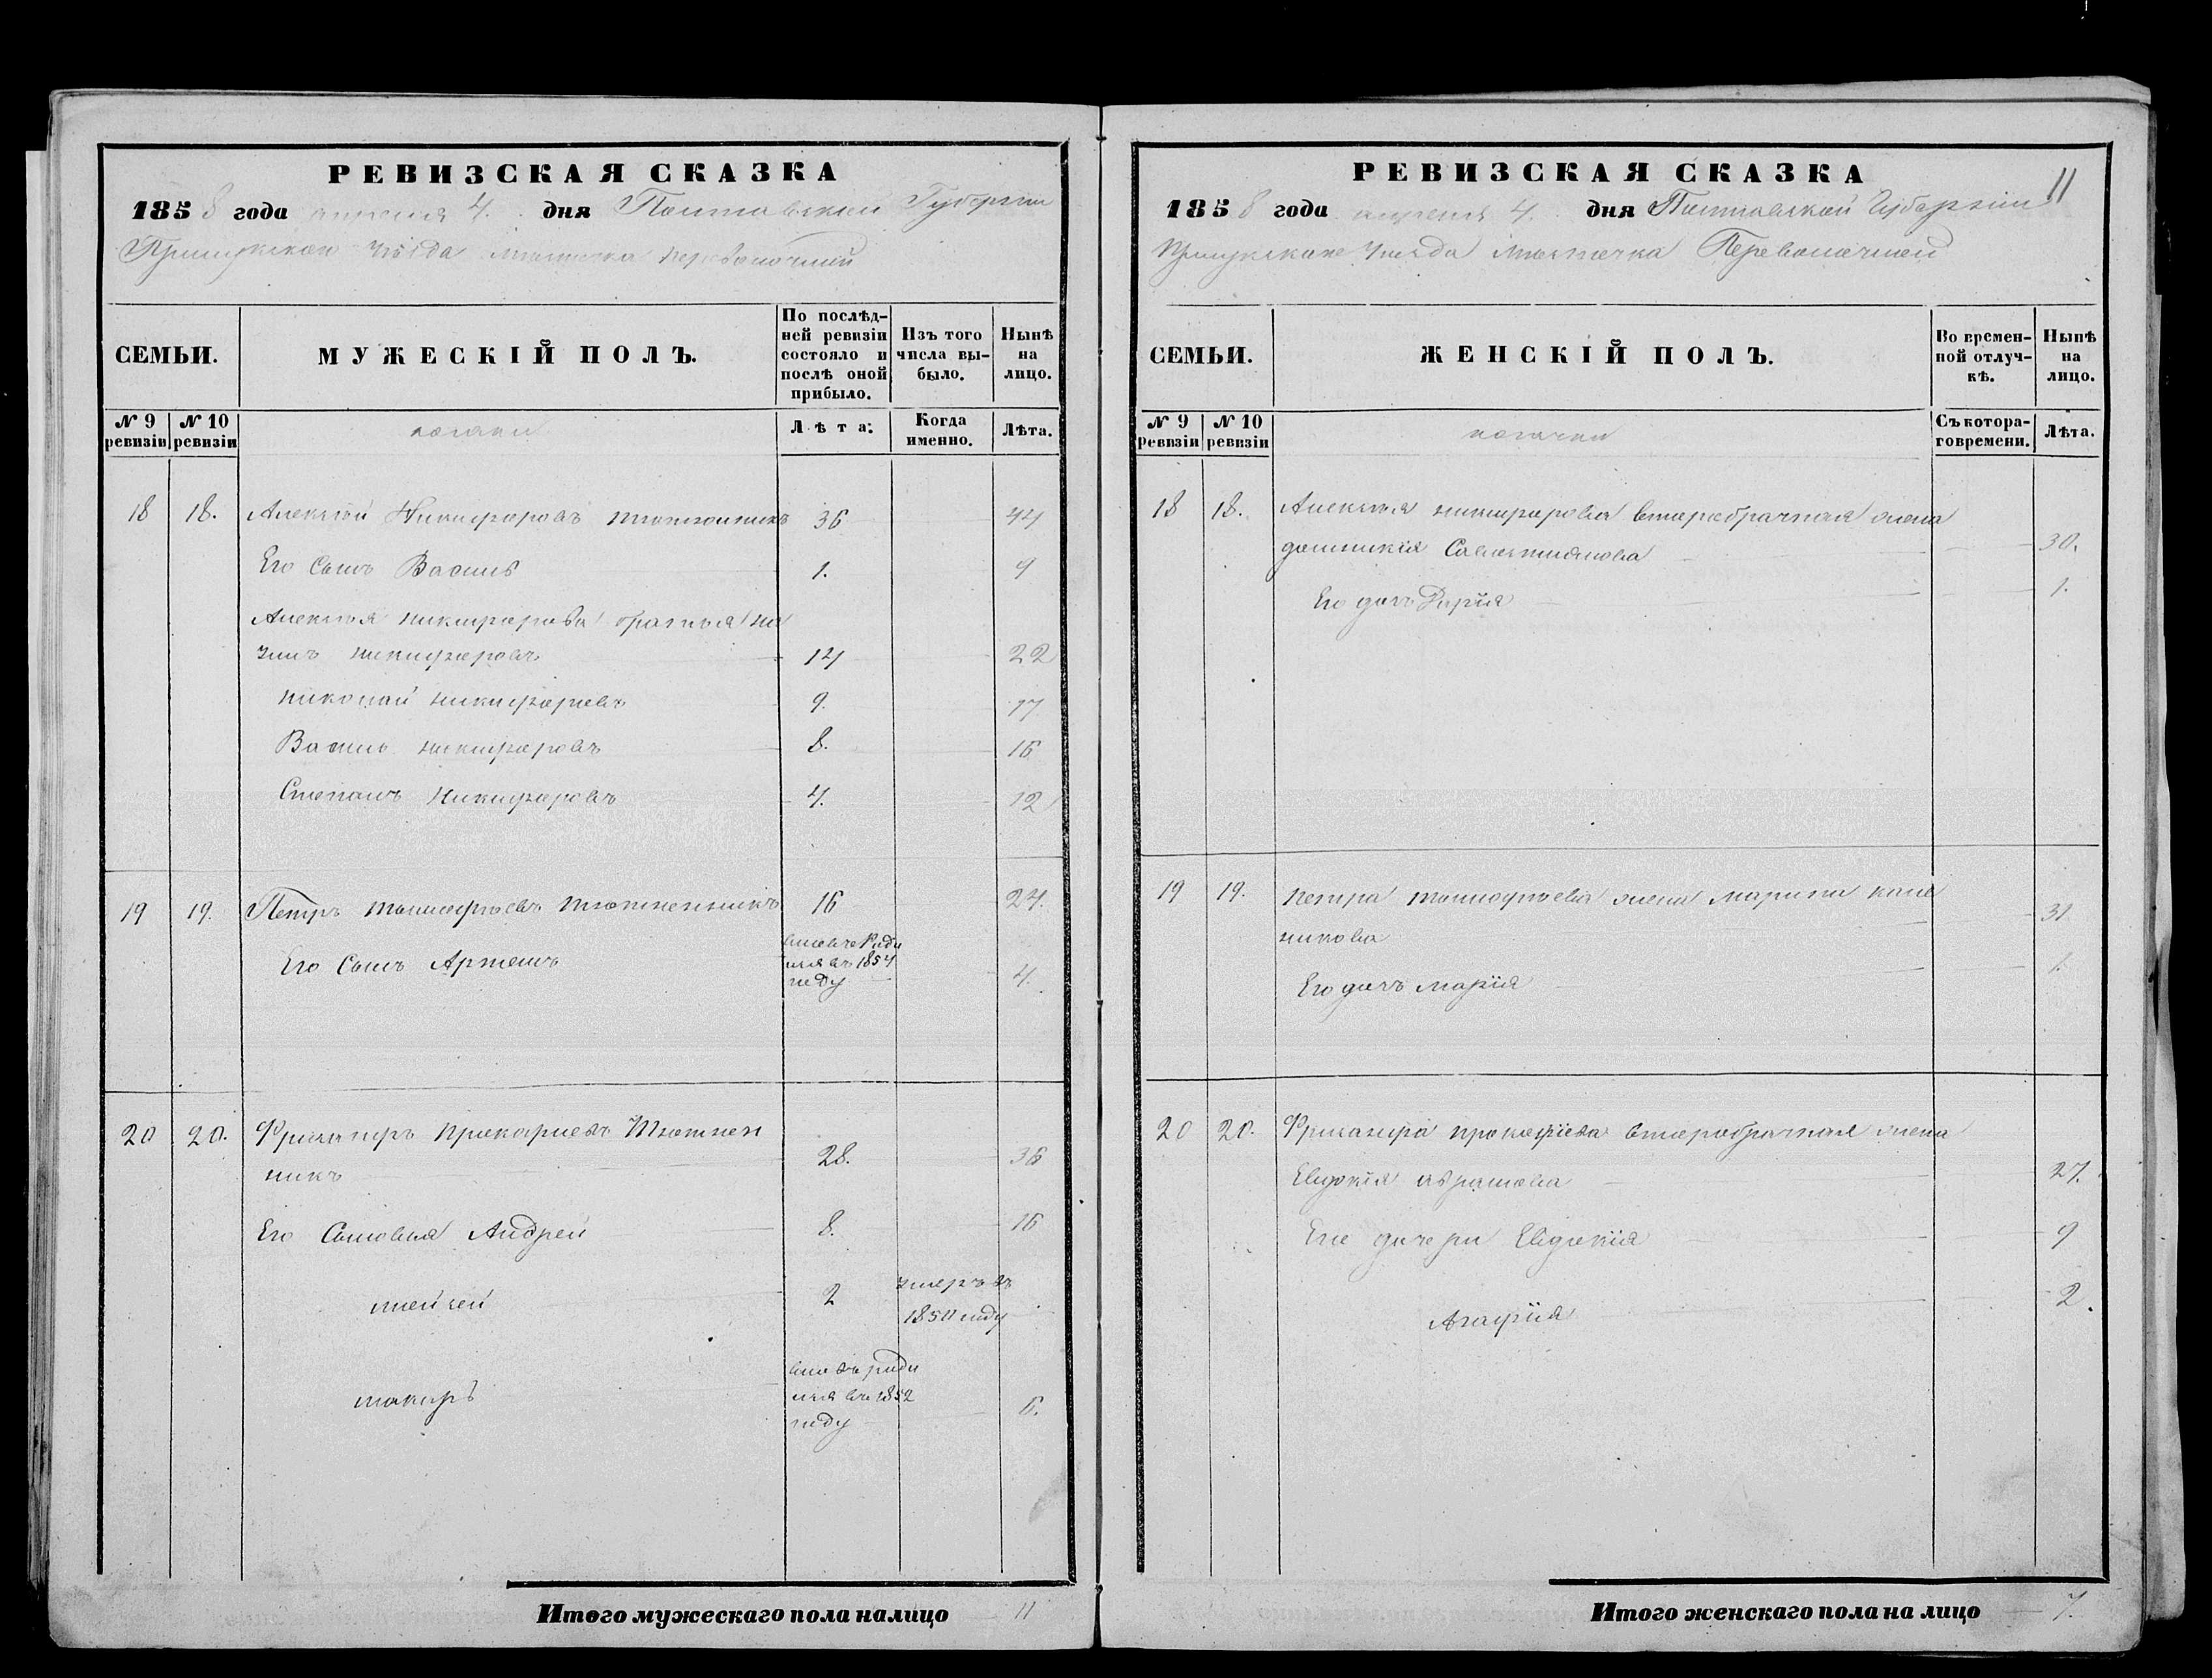 РЕВИЗСКАЯ СКАЗКА
1858 года апреля 4. дня Полтавской Губернии
Прилукскаго уѣзда местечка Переволочной
СЕМЬИ.
МУЖЕСКІЙ ПОЛЪ.
По послѣд-
ней ревизіи
состояло и
послѣ оной
прибыло.
Изъ того
числа вы-
было.
Нынѣ
на
лицо.
№ 9
ревизіи
№ 10
ревизіи
козаки
Лѣта:
Когда
именно.
Лѣта.
18 18. Алексѣй Никифоровъ 36 44
Его Сынъ Василь 1. 9
Алексѣя никифорова братья
никифоровъ 14 22
николай никифоровъ 9. 17
Василь никифоровъ 8. 16
Степанъ Никифоровъ 4. 12
19 19. Петръ Тимофѣевъ Тютюнникъ 16 24.
Его Сынъ Артемъ
вновь роди
лся въ 1854
году
4.
20 20. Прокофиевъ Тютюн
никъ 28. 36
Его Сыновья Андрей 8. 16
2
умеръ въ
году
вновь роди
лся въ 1852
году
6.
Итого мужескаго пола налицо 11
РЕВИЗСКАЯ СКАЗКА
11
1858 года апреля 4. дня Полтавской Губерніи
Прилукскаго уѣзда Местечка Переволочной
СЕМЬИ.
ЖЕНСКІЙ ПОЛЪ.
Во времен-
ной отлуч-
кѣ.
Нынѣ
на
лицо.
№ 9
ревизіи
№ 10
ревизіи
козачки
Съ котора-
го времени.
Лѣта.
18 18. Алексѣя никифорова второбрачная жена
Савостиянова 30.
Его дочь Дарія 1.
19 19. Петра Тимофѣева жена Марина
31
Его дочь Марія 1.
20 20. прокофіева второбрачная жена
Евдокія Абрамова 27.
Его дочери Евдокія 9
Агафія 2.
Итого женскаго пола на лицо 7.